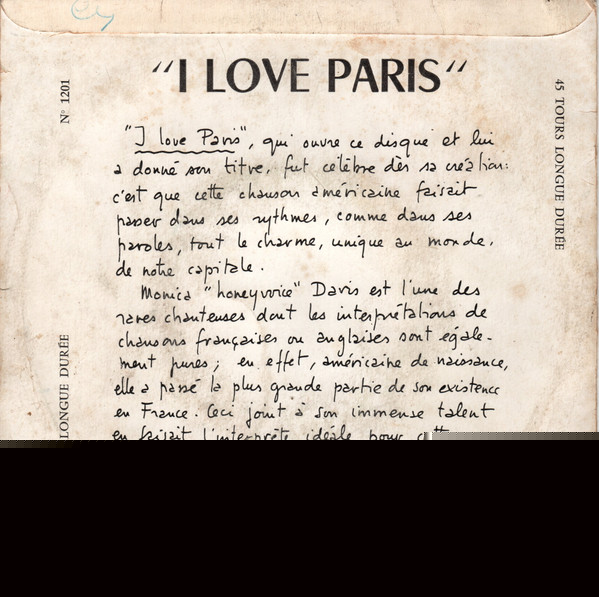 "I LOVE PARIS"
N° 1201
45 TOURS LONGUE DURÉE
"I love Paris", qui ouvre ce disque et lui
a donné son titre, fut célèbre dès sa création:
c'est que cette chanson américaine faisait
passer dans ses rythmes, comme dans ses
paroles, tout le charme, unique au monde,
de notre capitale.
Monica "honeyvoice" Davis est l'une des
rares chanteuses dont les interprétations de
chansons françaises ou anglaises sont égale-
ment pures; en effet, américaine de naissance,
elle a passé la plus grande partie de son existence
en France. Ceci joint à son immense talent
en faisait l'interprète idéale pour
LONGUE DURÉE